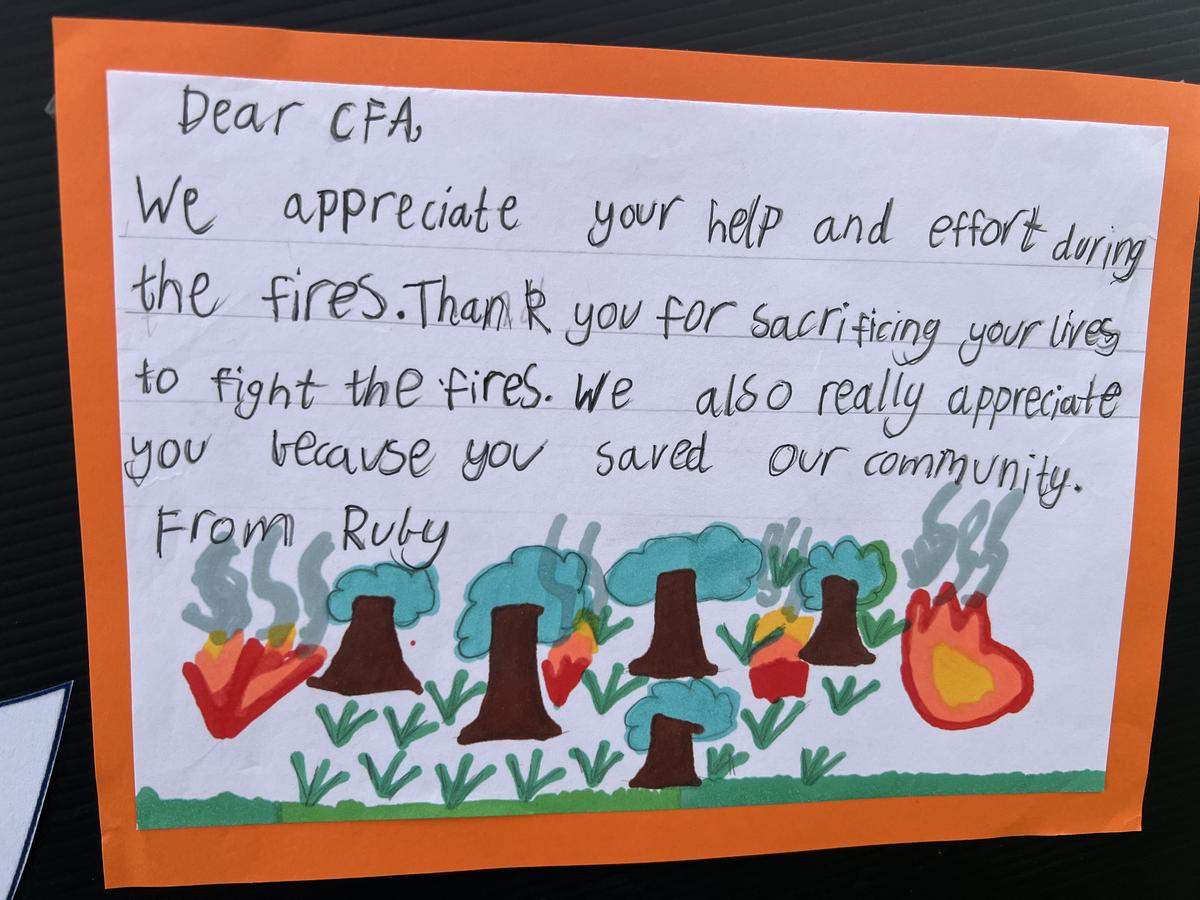 Dear CFA,
We appreciate your help and effort during
the fires. Thank you for sacrificing your lives
to fight the fires. We also really appreciate
you because you saved our community.
From Ruby